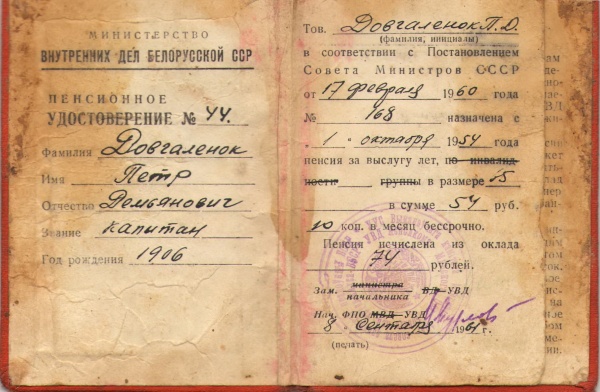 МИНИСТЕРСТВО
ВНУТРЕННИХ ДЕЛ БЕЛОРУССКОЙ ССР
ПЕНСИОННОЕ
УДОСТОВЕРЕНИЕ № 44.
Фамилия Довгаленок
Имя Петр
Отчество Демьянович
Звание капитан
Год рождения 1906
Тов. Довгаленок П.Д.
(фамилия, инициалы)
в соответствии с Постановлением
Совета Министров СССР
от 17 февраля 1960 года
№ 168 назначена с
„1" октября 1954 года
пенсия за выслугу лет, по инвалид-
ности группы в размере
в сумме 54 руб.
10 коп. в месяц бессрочно.
Пенсия исчислена из оклада
74 рублей.
Зам. министра ВД УВД
начальника
Нач. ФПО МВД УВД
8 сентября 1961 г.
(печать)